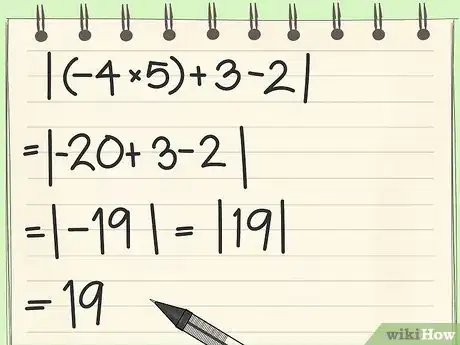 |(-4×5)+3-2|
=|-20+3-2|
=|-19|=|19|
=19
wikiHow